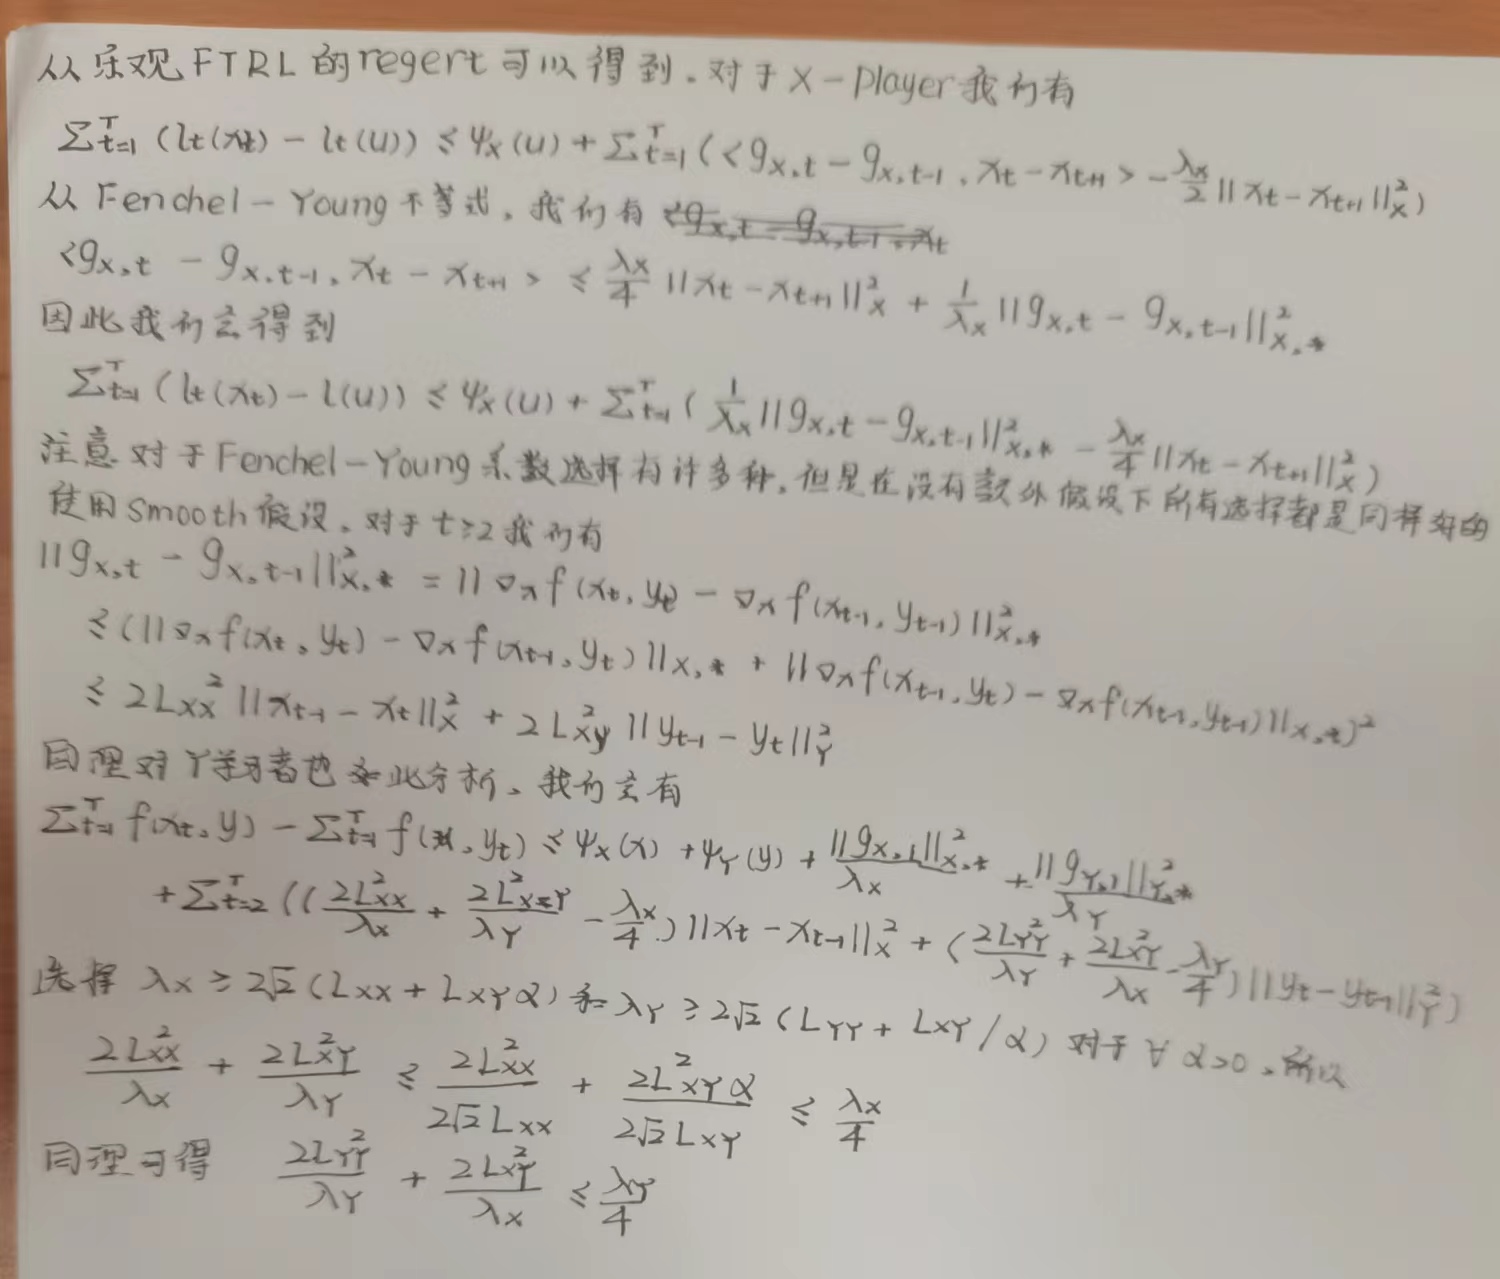 从乐观FTRL的regert可以得到.对于X-player我们有
Σ_{t=1}^T (l_t(x_t) - l_t(u)) ≤ ψ_X(u) + Σ_{t=1}^T (<g_{X,t} - g_{X,t-1}, x_t - x_{t+1}> - λ_X/2 ||x_t - x_{t+1}||_X^2)
从Fenchel-Young不等式,我们有
<g_{X,t} - g_{X,t-1}, x_t - x_{t+1}> ≤ λ_X/4 ||x_t - x_{t+1}||_X^2 + 1/λ_X ||g_{X,t} - g_{X,t-1}||_{X,*}^2
因此我们会得到
Σ_{t=1}^T (l_t(x_t) - l(u)) ≤ ψ_X(u) + Σ_{t=1}^T (1/λ_X ||g_{X,t} - g_{X,t-1}||_{X,*}^2 - λ_X/4 ||x_t - x_{t+1}||_X^2)
注意对于Fenchel-Young系数选择有许多种,但是在没有额外假设下所有选择都是同样好的
使用smooth假设,对于t≥2我们有
||g_{X,t} - g_{X,t-1}||_{X,*}^2 = ||∇_x f(x_t, y_t) - ∇_x f(x_{t-1}, y_{t-1})||_{X,*}^2
≤ (||∇_x f(x_t, y_t) - ∇_x f(x_{t-1}, y_t)||_{X,*} + ||∇_x f(x_{t-1}, y_t) - ∇_x f(x_{t-1}, y_{t-1})||_{X,*})^2
≤ 2L_{XX}^2 ||x_{t-1} - x_t||_X^2 + 2L_{XY}^2 ||y_{t-1} - y_t||_Y^2
同理对Y学习者也如此分析,我们会有
Σ_{t=1}^T f(x_t, y) - Σ_{t=1}^T f(x, y_t) ≤ ψ_X(x) + ψ_Y(y) + ||g_{X,1}||_{X,*}^2/λ_X + ||g_{Y,1}||_{Y,*}^2/λ_Y
+ Σ_{t=2}^T ((2L_{XX}^2/λ_X + 2L_{XY}^2/λ_Y - λ_X/4) ||x_t - x_{t-1}||_X^2 + (2L_{YY}^2/λ_Y + 2L_{XY}^2/λ_X - λ_Y/4) ||y_t - y_{t-1}||_Y^2)
选择 λ_X ≥ 2√2 (L_{XX} + L_{XY}α) 和 λ_Y ≥ 2√2 (L_{YY} + L_{XY}/α) 对于∀α>0,所以
2L_{XX}^2/λ_X + 2L_{XY}^2/λ_Y ≤ 2L_{XX}^2/(2√2 L_{XX}) + 2L_{XY}^2 α/(2√2 L_{XY}) ≤ λ_X/4
同理可得 2L_{YY}^2/λ_Y + 2L_{XY}^2/λ_X ≤ λ_Y/4